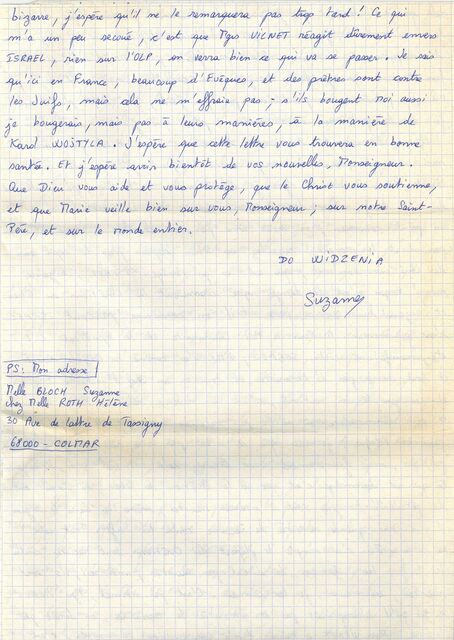 bizarre, j'espère qu'il ne le remarquera pas trop tard ! Ce qui
m'a un peu secoué, c'est que Mgrs VILNET réagit durement envers
ISRAEL, rien sur l'OLP, on verra bien ce qui va se passer. Je sais
qu'ici en France, beaucoup d'Evêques, et des prêtres sont contre
les Juifs, mais cela ne m'effraie pas - s'ils bougent moi aussi
je bougerais, mais pas à leurs manières, à la manière de
Karol WOSTYLA. J'espère que cette lettre vous trouvera en bonne
santée. Et j'espère avoir bientôt de vos nouvelles, Monseigneur.
Que Dieu vous aide et vous protège, que le Christ vous soutienne,
et que Marie veille bien sur vous, Monseigneur ; sur notre Saint-
Père, et sur le monde entier.
DO WIDZENIA
Suzanne
PS : Mon adresse
Melle BLOCH Suzanne
chez Melle ROTH Hélène
30 Ave de Lattre de Tassigny
68000 - COLMAR